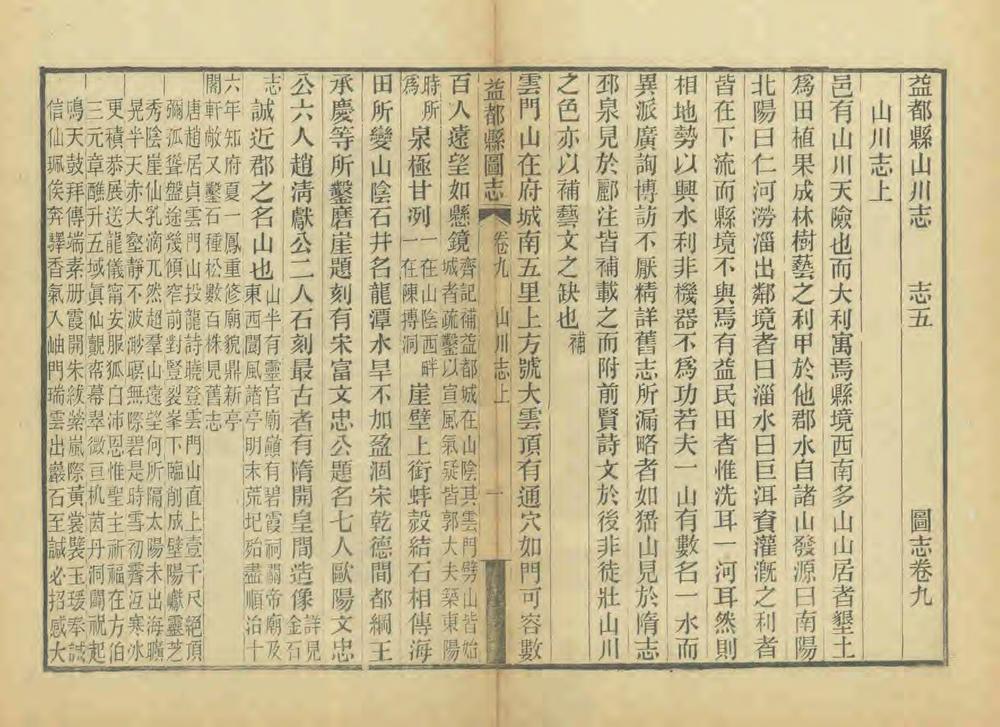 益都縣山川志 志五 圖志卷九
山川志上
邑有山川天險也而大利寓焉縣境西南多山山居者墾土
爲田植果成林樹藝之利甲於他郡水自諸山發源曰南陽
北陽曰仁河澇淄出鄰境者曰淄水曰巨洱資灌漑之利者
皆在下流而縣境不與焉有益民田者惟洗耳一河耳然則
相地勢以興水利非機器不爲功若夫一山有數名一水而
異派廣詢博訪不厭精詳舊志所漏略者如㺗山見於隋志
邳泉見於酈注皆補載之而附前賢詩文於後非徒壯山川
之色亦以補藝文之缺也補
雲門山在府城南五里上方號大雲頂有通穴如門可容數
益都縣圖志 卷九 山川志上 一
百人遠望如懸鏡齊記補益都城在山陰其雲門劈山皆始
城者疏鑿以宣風氣疑皆郭大夫築東陽
時所
爲泉極甘洌一在山陰西畔
一在陳摶洞崖壁上銜蚌殼結石相傳海
田所變山陰石井名龍潭水旱不加盈涸宋乾德間都綱王
承慶等所鑿磨崖題刻有宋富文忠公題名七人歐陽文忠
公六人趙淸獻公二人石刻最古者有隋開皇間造像詳見
金石
志誠近郡之名山也山半有靈官廟巔有碧霞祠關帝廟及
東西閬風諸亭明末荒圯殆盡順治十
六年知府夏一鳳重修廟貌鼎新亭
閣軒敞又鑿石種松數百株見舊志
唐趙居貞雲門山投龍詩曉登雲門山直上壹千尺絕頂
彌孤聳盤途幾傾窄前對豎裂峯下臨削成壁陽巘靈芝
秀陰崖仙乳滴兀然超羣山遠望何所隔太陽未出海曠
晃半天赤大壑靜不波渺暝無際碧是時雪初霽沍寒水
更積恭展送龍儀甯安服狐白沛恩惟聖主祈福在方伯
三元章醮升五域眞仙覿帟幕翠微亘机茵丹洞闢祝起
鳴天鼓拜傳端素册霞開朱紱紫嵐際黃裳襞玉瑗奉誠
信仙珮俟奔驛香氣入岫門瑞雲出巖石至誠必招感大